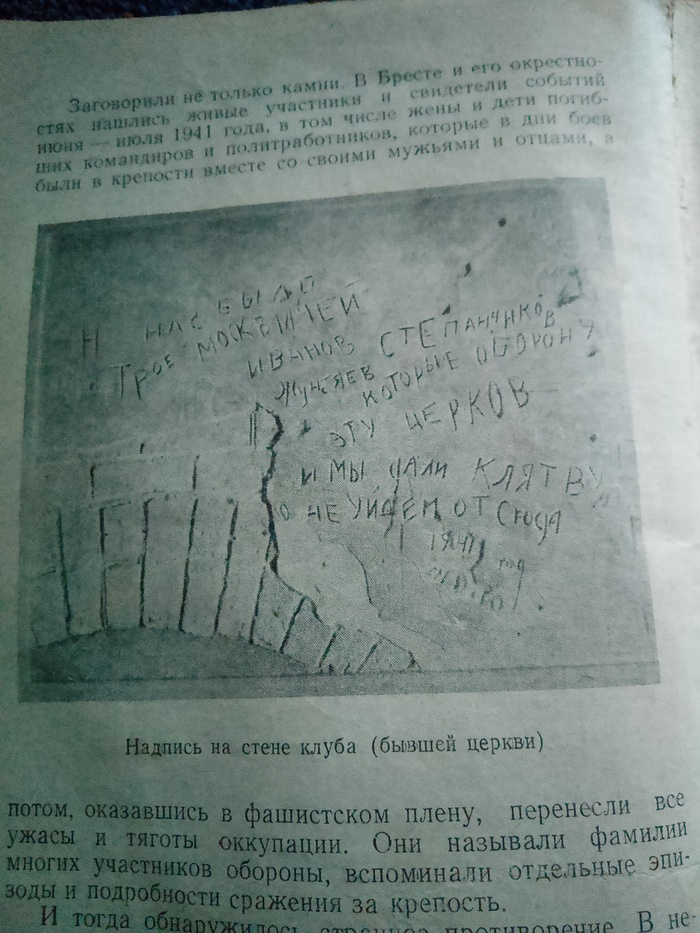 Заговорили не только камни. В Бресте и его окрестно-
стях нашлись живые участники и свидетели событий
июня — июля 1941 года, в том числе жены и дети погиб-
ших командиров и политработников, которые в дни боев
были в крепости вместе со своими мужьями и отцами, а
Н НАС БЫЛО
ТРОЕ МОСКВИЧЕЙ
ИВАНОВ СТЕПАНЧИКОВ
ЖУНТЯЕВ КОТОРЫЕ ОБОРОНЯ
ЭТУ ЦЕРКОВ
И МЫ ДАЛИ КЛЯТВУ
НЕ УЙДЕМ ОТСЮДА
1941 год
Надпись на стене клуба (бывшей церкви)
потом, оказавшись в фашистском плену, перенесли все
ужасы и тяготы оккупации. Они называли фамилии
многих участников обороны, вспоминали отдельные эпи-
зоды и подробности сражения за крепость.
И тогда обнаружилось странное противоречие. В не-